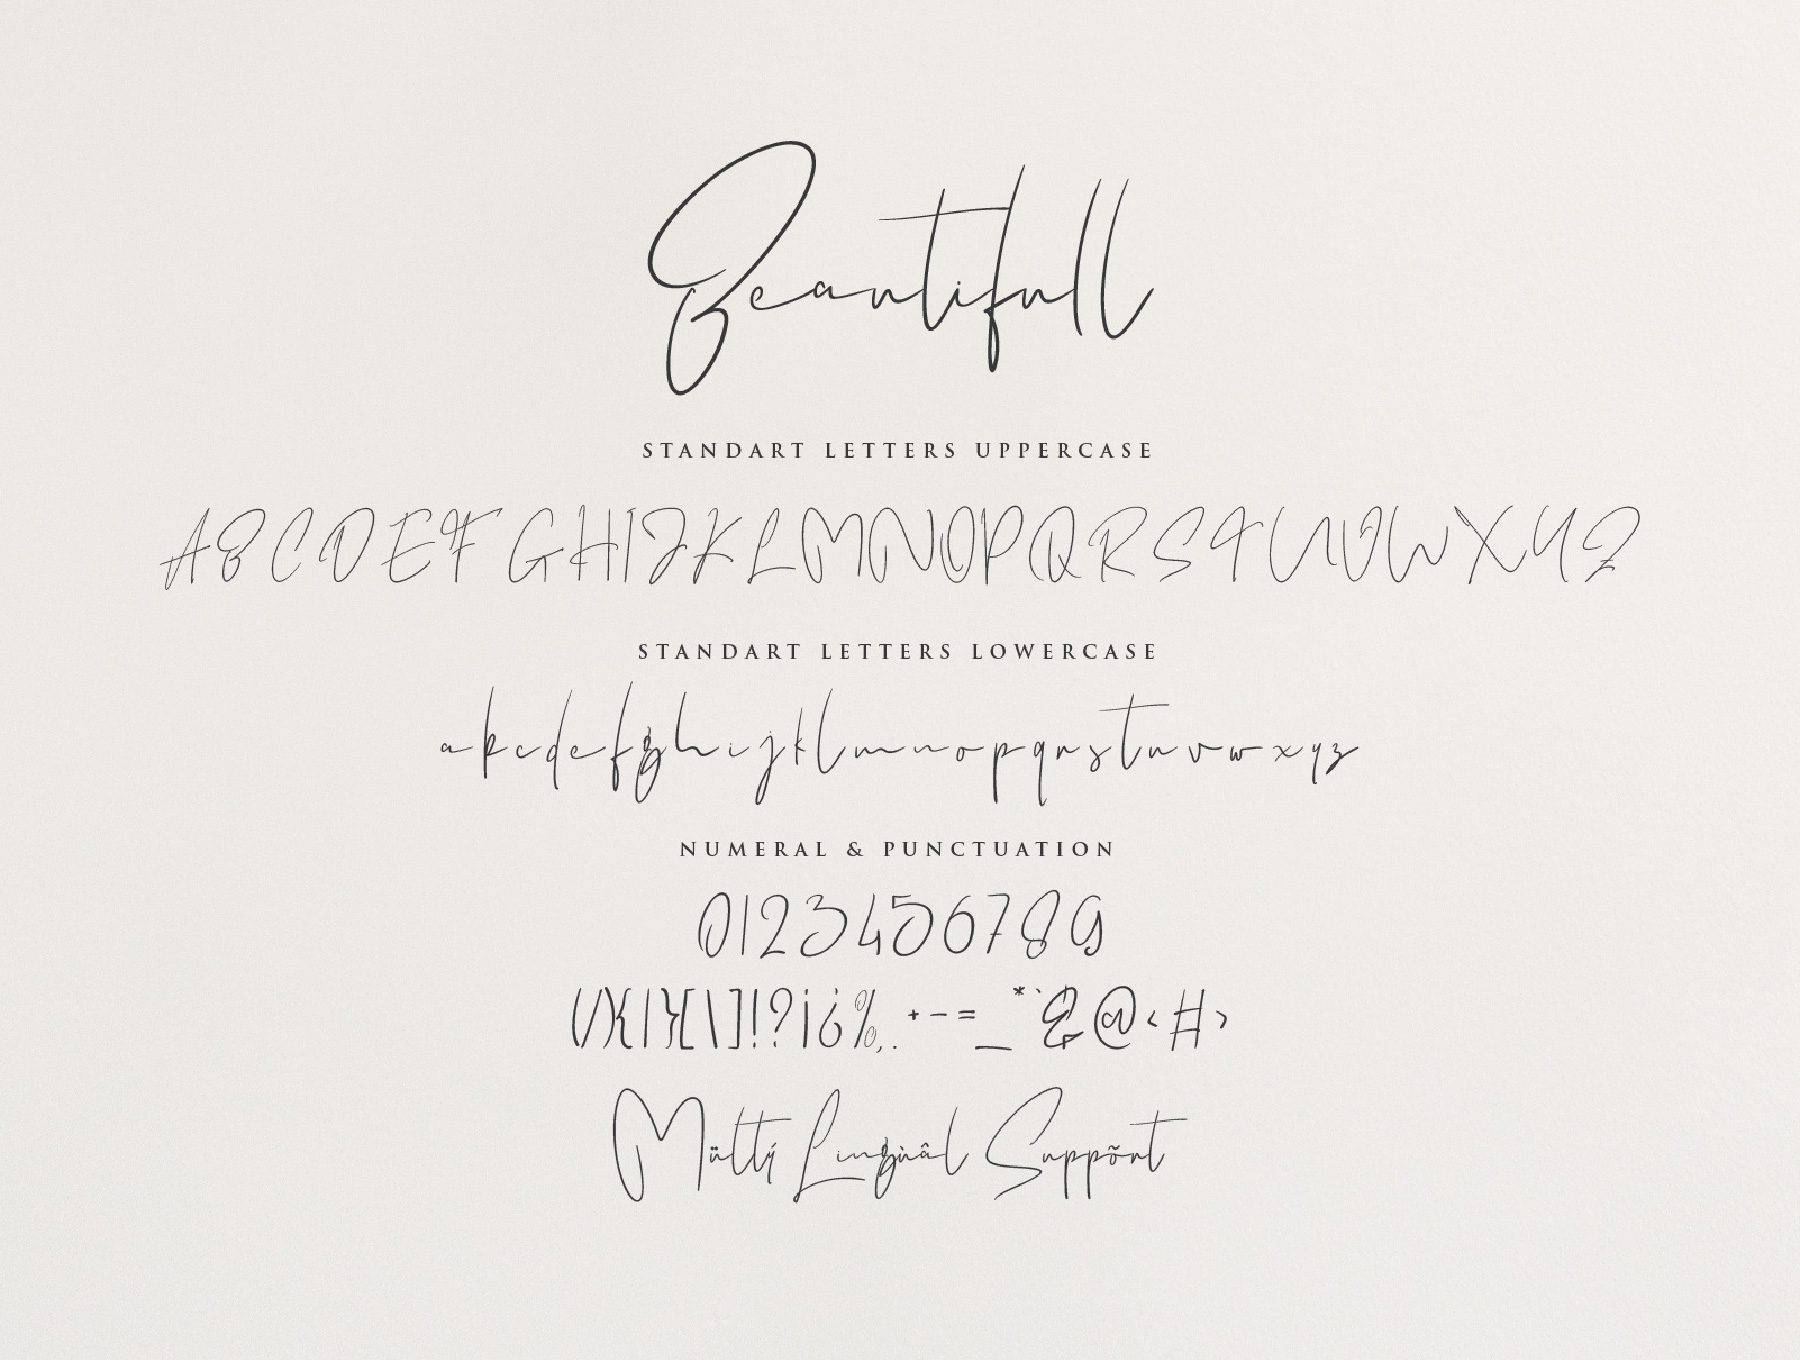 Beautifull
STANDART LETTERS UPPERCASE
ABCDEFGHIJKLMNOPQRSTUVWXYZ
STANDART LETTERS LOWERCASE
abcdefghijklmnopqrstuvwxyz
NUMERAL & PUNCTUATION
0123456789
(/){|}[\]!?¡¿%,.+-=_*`&@<#>
Mülty Lingùâl Suppõrt